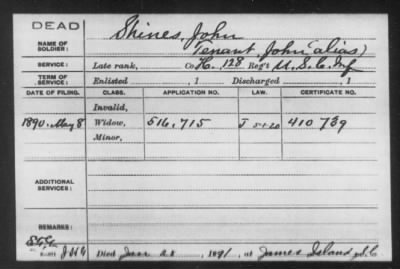 DEAD
Shines, John
NAME OF SOLDIER:
Tenant, John (alias)
SERVICE: Late rank, Co. H. 128 Reg't U.S.C. Inf
TERM OF SERVICE: Enlisted , 1 Discharged , 1
DATE OF FILING. CLASS. APPLICATION NO. LAW. CERTIFICATE NO.
Invalid,
1890. May 8 Widow, 516,715 410 739
Minor,
ADDITIONAL SERVICES:
REMARKS:
Died Jan , 1891, at James Island, S.C.